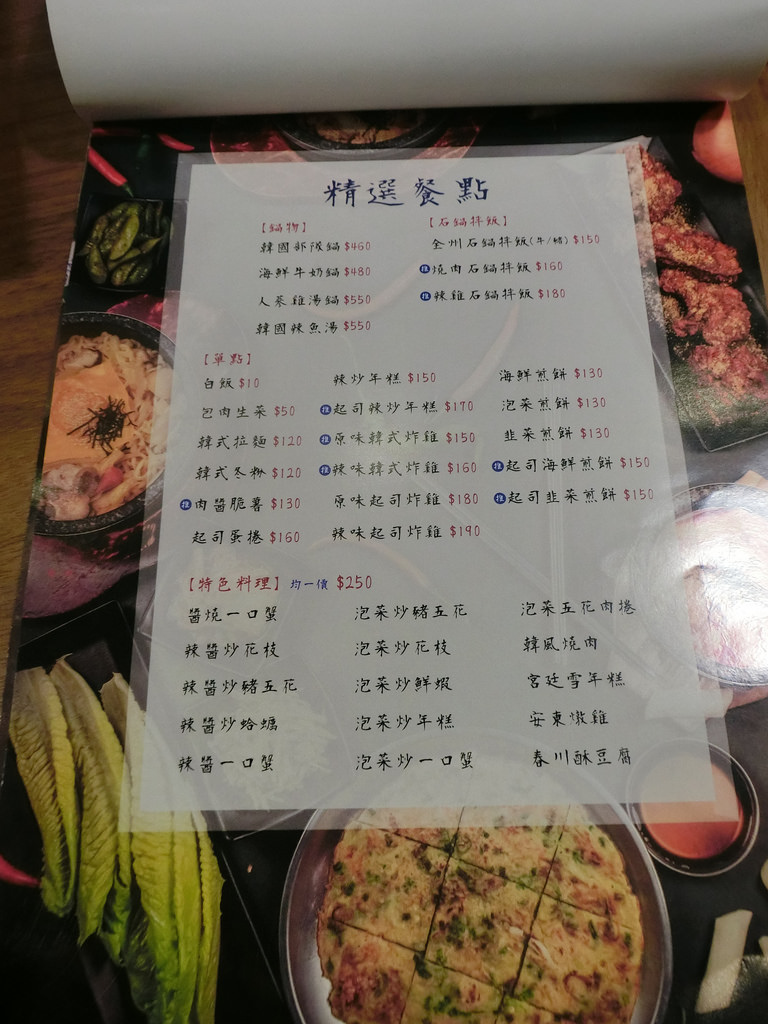 精選餐點
【鍋物】
韓國部隊鍋 $460
海鮮牛奶鍋 $480
人蔘雞湯鍋 $550
韓國辣魚湯 $550
【石鍋拌飯】
全州石鍋拌飯(牛/豬) $150
推 燒肉石鍋拌飯 $160
推 辣雞石鍋拌飯 $180
【單點】
白飯 $10
包肉生菜 $50
韓式拉麵 $120
韓式冬粉 $120
推 肉醬脆薯 $130
起司蛋捲 $160
辣炒年糕 $150
推 起司辣炒年糕 $170
推 原味韓式炸雞 $150
推 辣味韓式炸雞 $160
原味起司炸雞 $180
辣味起司炸雞 $190
海鮮煎餅 $130
泡菜煎餅 $130
韭菜煎餅 $130
推 起司海鮮煎餅 $150
推 起司韭菜煎餅 $150
【特色料理】均一價 $250
醬燒一口蟹
辣醬炒花枝
辣醬炒豬五花
辣醬炒蛤蠣
辣醬一口蟹
泡菜炒豬五花
泡菜炒花枝
泡菜炒鮮蝦
泡菜炒年糕
泡菜炒一口蟹
泡菜五花肉捲
韓風燒肉
宮廷雪年糕
安東燉雞
春川酥豆腐